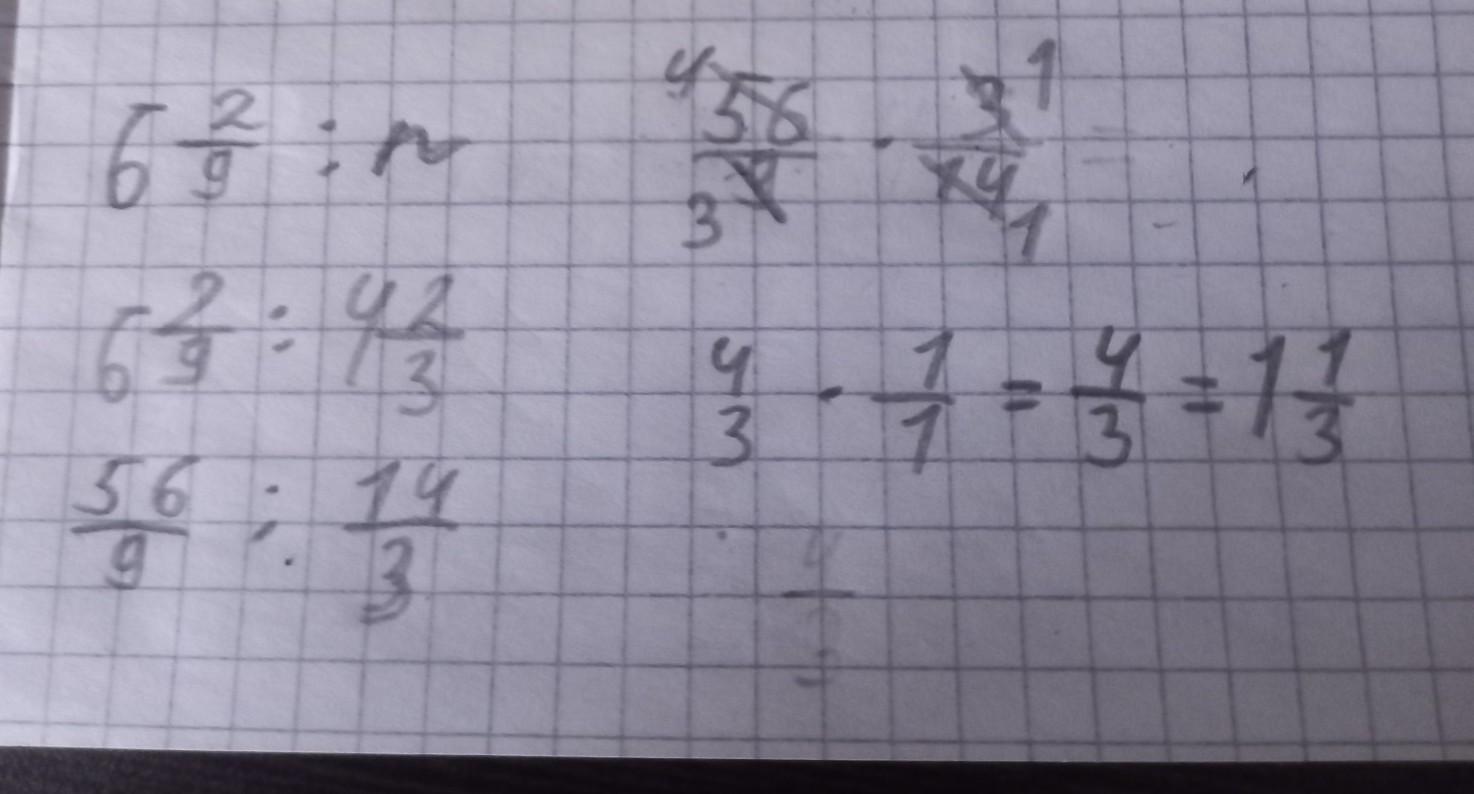 6 2/9 : n
6 2/9 : 4 2/3
56/9 : 14/3
4 56/9 3 · 3/14 1 1 =
4/3 · 1/1 = 4/3 = 1 1/3